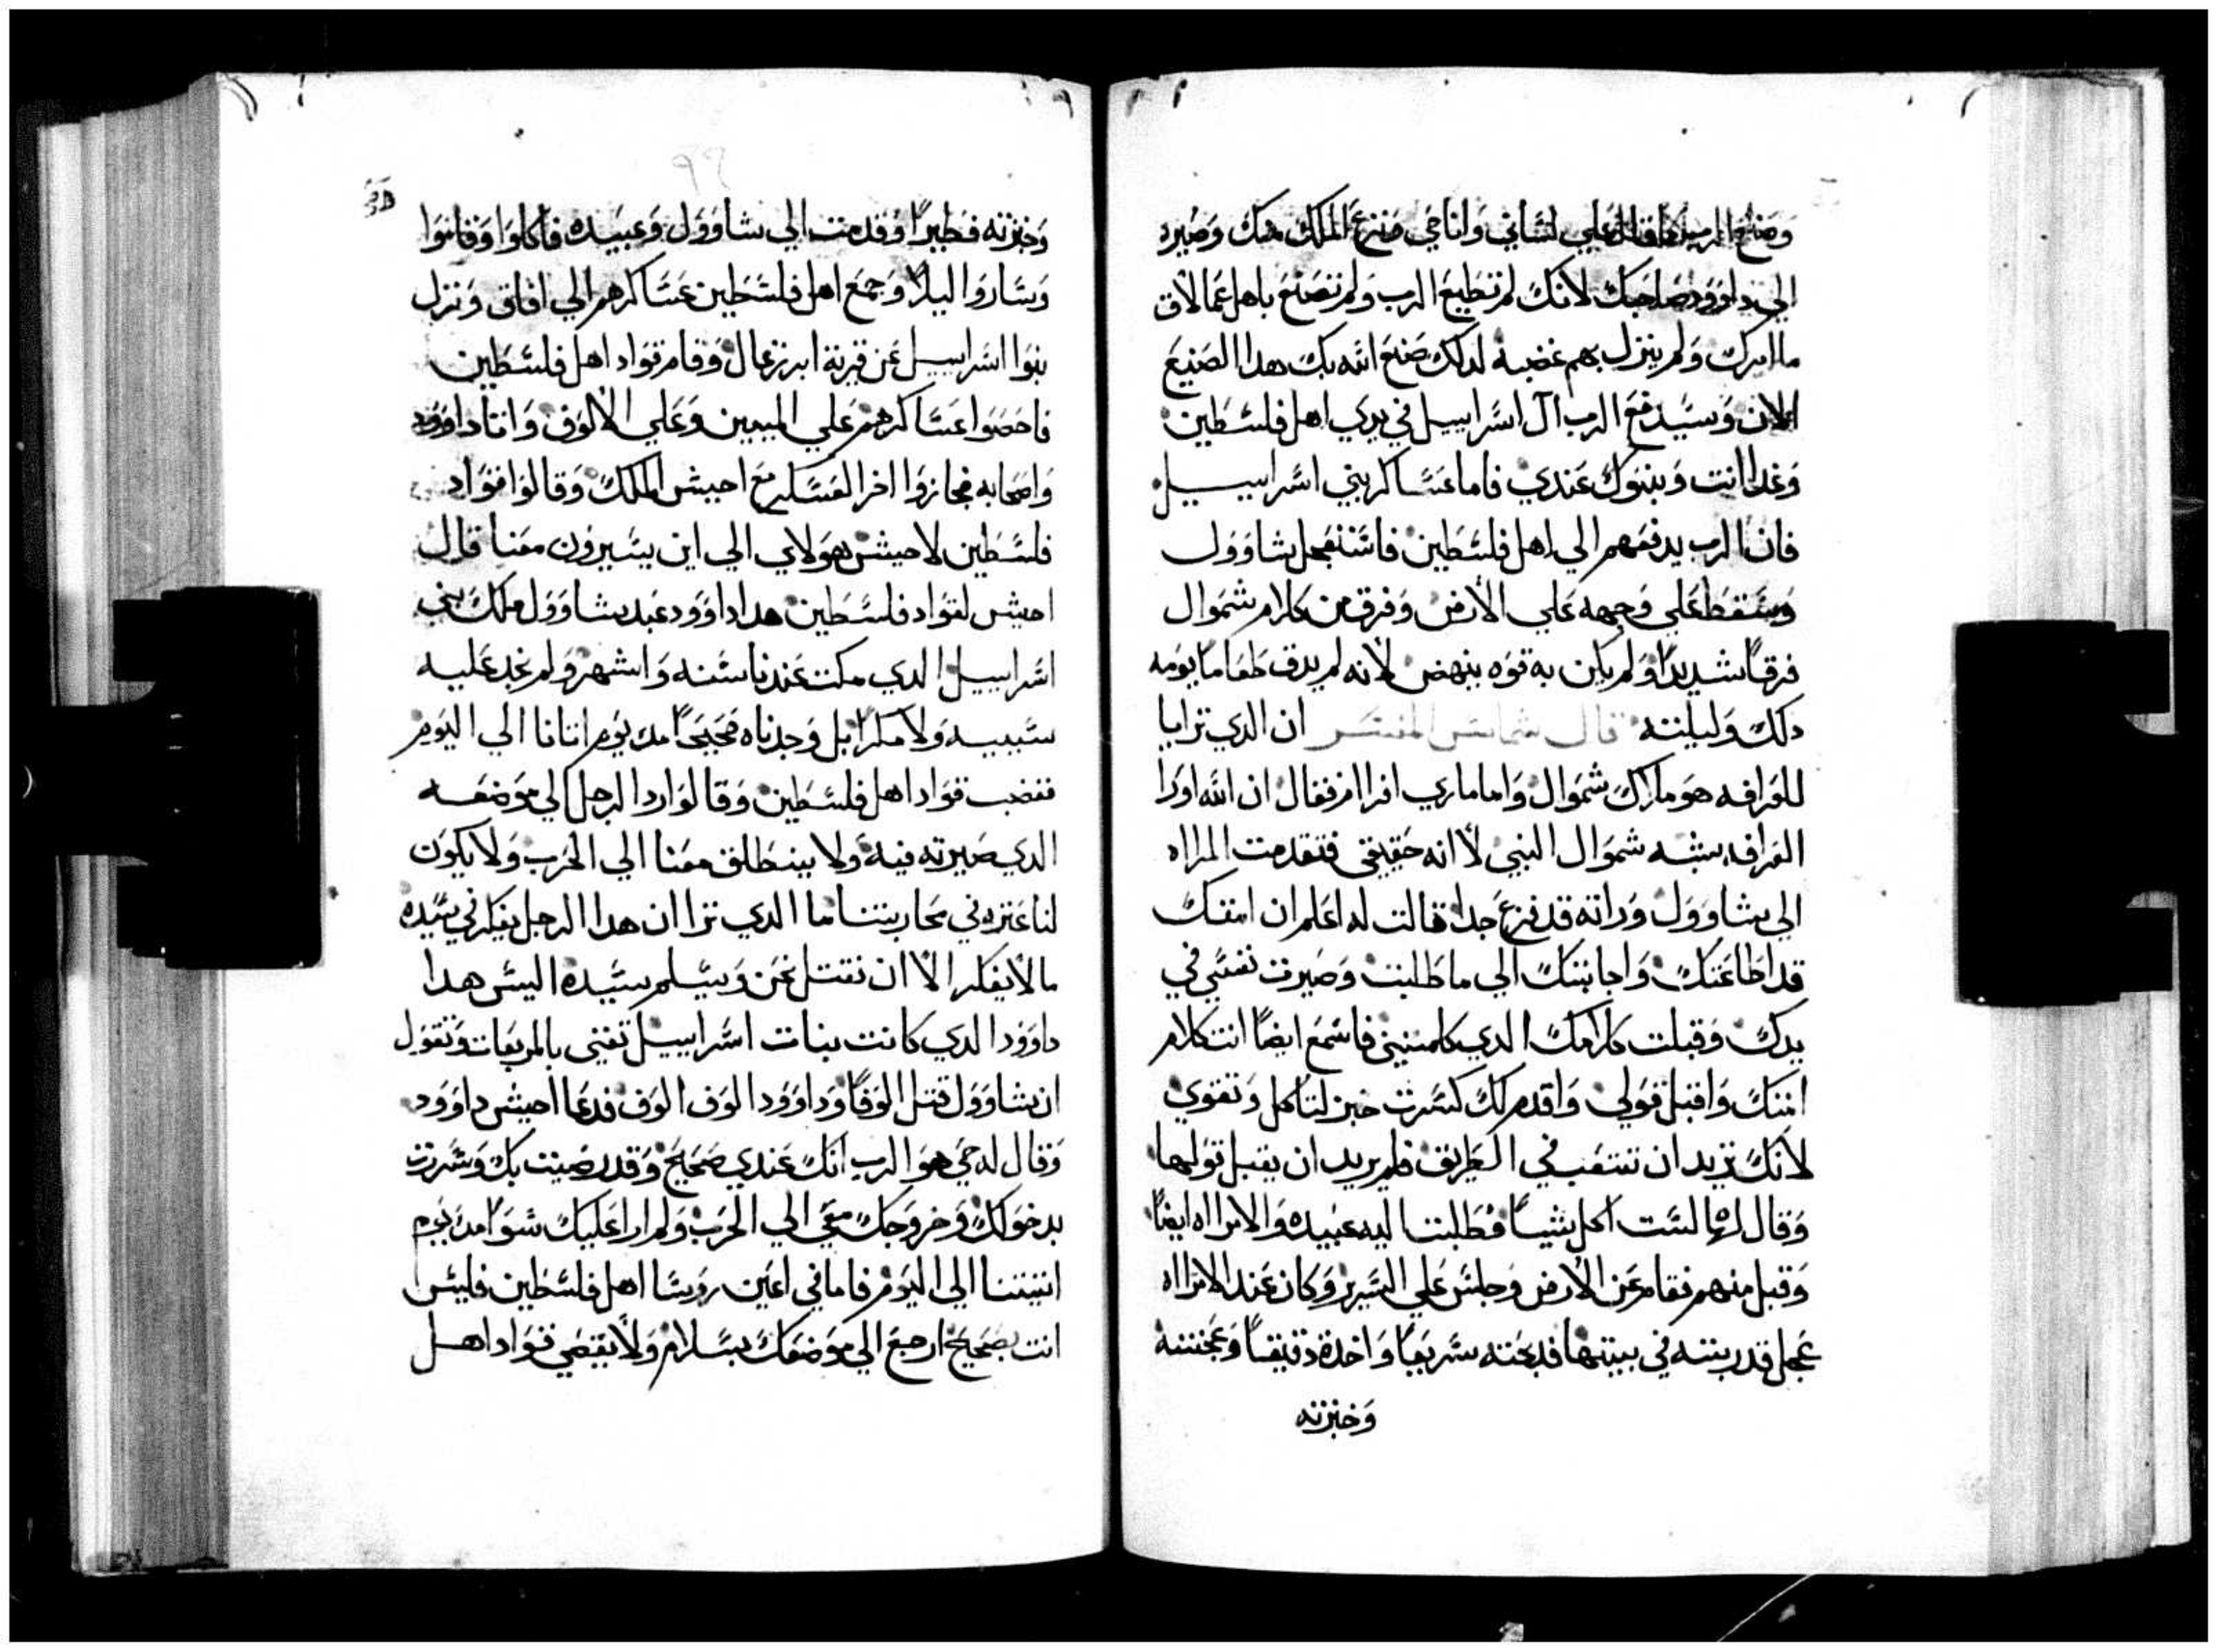 وصنع الرب كما قال علي لساني وانا حي ونزع الملك منك وصيره
الي داوود صاحبك لانك لم تطيع الرب ولم تصنع باهل عمالاق
ما امرك ولم ينزل بهم غضبه لدلك صنع الله بك هدا الصنيع
الان وسيدفع الرب ال اسراييل في يدي اهل فلسطين
وغدا انت وبنوك عندي فاما عساكر بني اسراييل
فان الرب يدفعهم الي اهل فلسطين فاستعجل شاوول
وسقط علي وجهه علي الارض وفرق من كلام شموال
فرقا شديدا ولم يكن به قوه ينهض لانه لم يدق طعاما يومه
دلك وليلته قال شماس المفسر ان الدي ترايا
للعرافه هو ماراك شموال واما ماري افرام فقال ان الله اورا
العرافه شبه شموال النبي لا انه حقيقي فتقدمت المراه
الي شاوول وراته قد فزع جدا قالت له اعلم ان امتك
قد اطاعتك واجابتك الي ما طلبت وصيرت نفسي في
يدك وقبلت كلامك الدي كلمتني فاسمع ايضا انت كلام
امتك واقبل قولي واقدم لك كسرت خبز لتاكل وتقوي
لانك تريد ان تتعب في الطريق فلم يريد ان يقبل قولها
وقال لها لست اكل شيا فطلبت اليه عبيده والامراه ايضا
وقبل منهم فقام عن الارض وجلس علي السرير وكان عند الامراه
عجل قد ربته في بيتها فدبحته سريعا واخدة دقيقا وعجنته
وخبزته
وخبزته فطيرا وقدمت الي شاوول وعبيده فاكلوا وقاموا
وساروا ليلا وجمع اهل فلسطين عساكرهم الي افاق ونزل
بنوا اسراييل عن قرية ابرزعال وقام قواد اهل فلسطين
فاحصوا عساكرهم علي الميين وعلي الالوف واتا داوود
واصحابه فجازوا اخر العسكر مع احيش الملك وقالوا قواد
فلسطين لاحيش هولاي الي اين يسيرون معنا قال
احيش لقواد فلسطين هدا داوود عبد شاوول ملك بني
اسراييل الدي مكت عندنا سنه واشهر ولم نجد عليه
سبيه ولا مكرا بل وجدناه صحيحا مد يوم اتانا الي اليوم
فغضب قواد اهل فلسطين وقالوا رد الرجل الي موضعه
الدي صيرته فيه ولا ينطلق معنا الي الحرب ولا يكون
لنا عتره في محاربتنا ما الدي ترا ان هدا الرجل يفكر في سيده
ما لا يفكر الا ان نقتل نحن ويسلم سيده اليس هدا
داوود الدي كانت بنات اسراييل تغني بالمربعات وتقول
ان شاوول قتل الوفا وداوود الوف الوف فدعا احيش داوود
وقال له حي هو الرب انك عندي صحيح وقد رضيت بك وسررت
بدخولك وخروجك معي الي الحرب ولم ارا عليك سوا مد يوم
اتيتنا الي اليوم فاما في اعين روسا اهل فلسطين فليس
انت بصحيح ارجع الي موضعك بسلام ولا يقضي قواد اهل